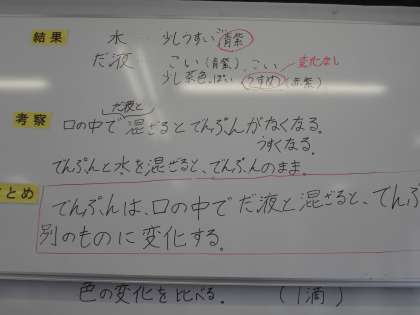 結果 水 少しうすい 青紫
だ液 こい(青紫) こい 変化なし
少し茶色っぽい うすめ(赤紫)
だ液と
考察 口の中で混ざるとでんぷんがなくなる。
うすくなる。
でんぷんと水を混ぜると、でんぷんのまま。
とめ でんぷんは、口の中でだ液と混ざると、でんぷ
別のものに変化する。
色の変化を比べる。 (1滴)